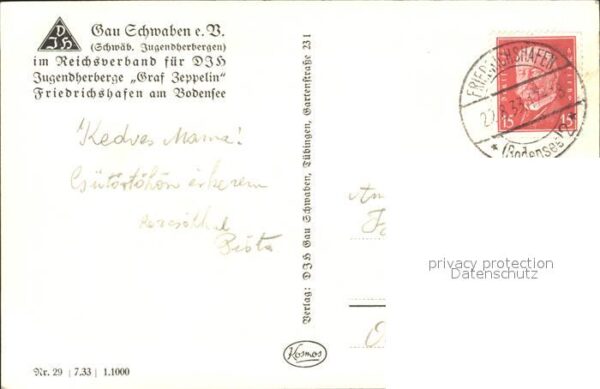 DJH
Gau Schwaben e. V.
(Schwäb. Jugendherbergen)
im Reichsverband für DJH
Jugendherberge „Graf Zeppelin"
Friedrichshafen am Bodensee
FRIEDRICHSHAFEN
(Bodensee)
15 15
Kedves Mama!
Csütörtökön érkezem
Pista
Verlag: DJH Gau Schwaben, Tübingen, Gartenstraße 231
privacy protection
Datenschutz
Kosmos
Nr. 29 | 7.33 | 1.1000